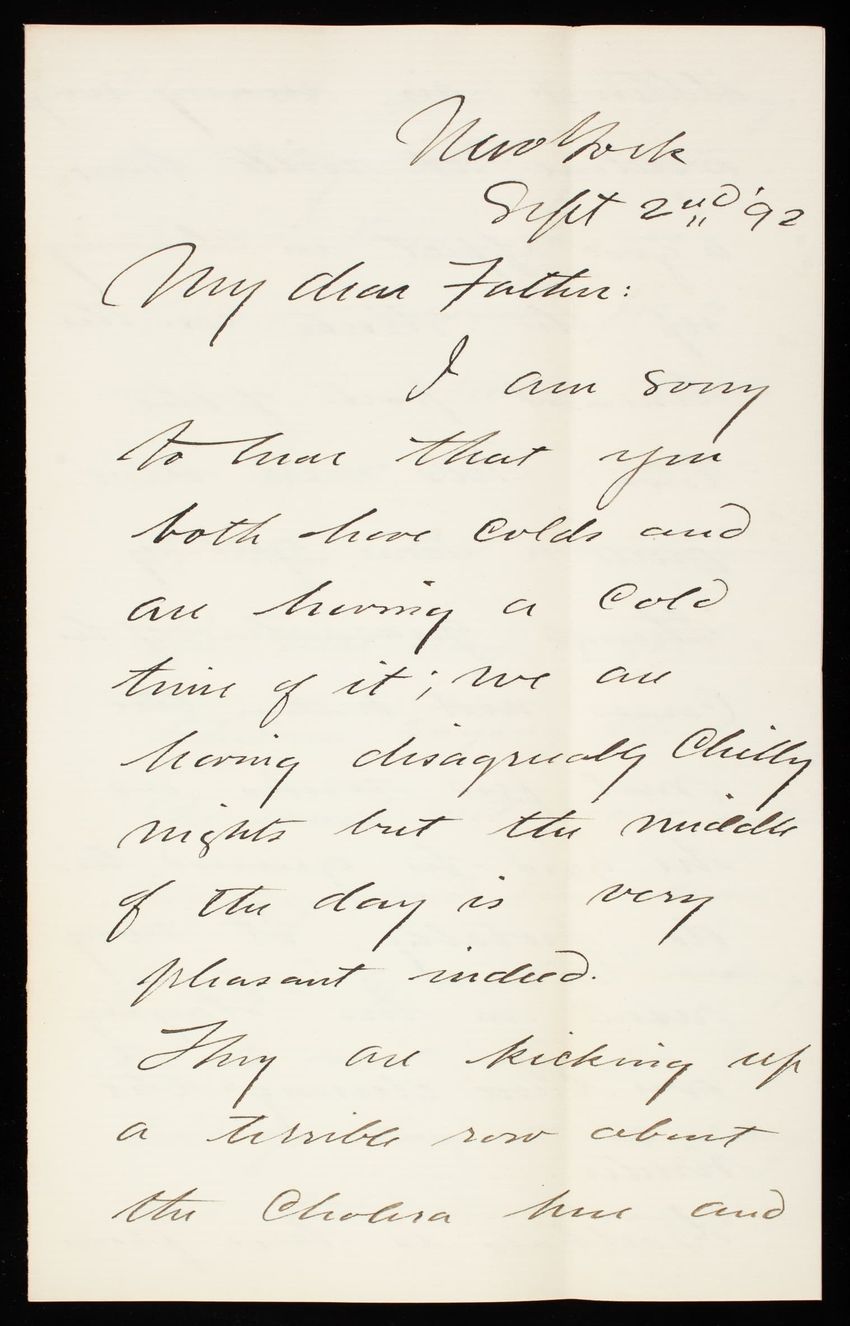 New York
Sept 2nd '92
My dear Father:
I am sorry
to hear that you
both have colds and
are having a cold
time of it; we are
having disagreeably chilly
nights but the middle
of the day is very
pleasant indeed.
They are kicking up
a terrible row about
the Cholera here and